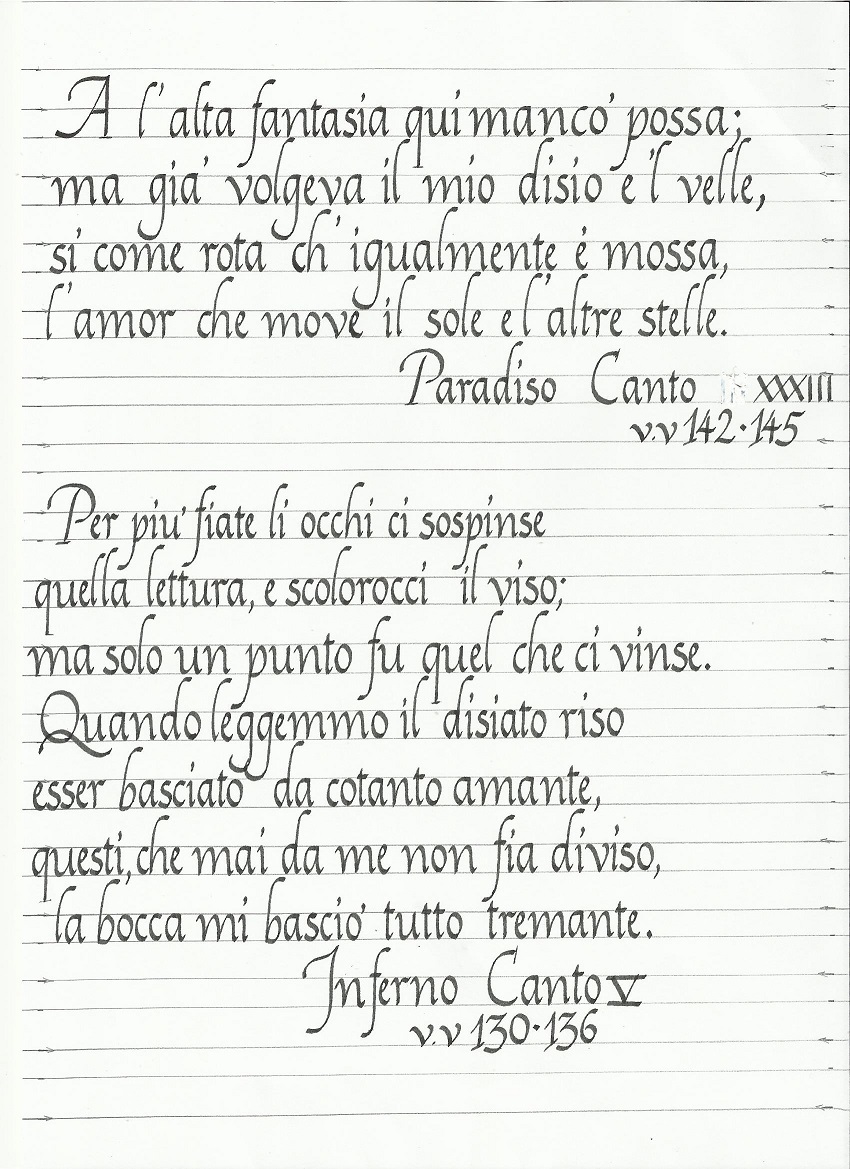 A l'alta fantasia qui mancò possa;
ma già volgeva il mio disio e 'l velle,
sì come rota ch' igualmente è mossa,
l'amor che move il sole e l'altre stelle.
Paradiso Canto XXXIII
v.v 142·145
Per più fiate li occhi ci sospinse
quella lettura, e scolorocci il viso;
ma solo un punto fu quel che ci vinse.
Quando leggemmo il disiato riso
esser basciato da cotanto amante,
questi, che mai da me non fia diviso,
la bocca mi basciò tutto tremante.
Inferno Canto V
v.v 130·136